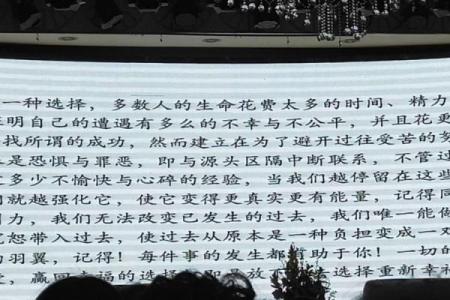 一种选择，多数人的生命花费太多的时间、精力
证明自己的遭遇有多么的不幸与不公平，并且花更
找所谓的成功，然而建立在为了避开过往受苦的努
是恐惧与罪恶，即与源头区隔中断联系，不管过
多少不愉快与心碎的经验，当我们越停留在这些
们就越强化它，使它变得更真实更有能量，记得同
力，我们无法改变已发生的过去，我们唯一能做
宽恕带入过去，使过去从原本是一种负担变成一对
的羽翼，记得！每件事的发生都有助于你！一切的
，赢回幸福的选择 即是放下 去选择重新幸福